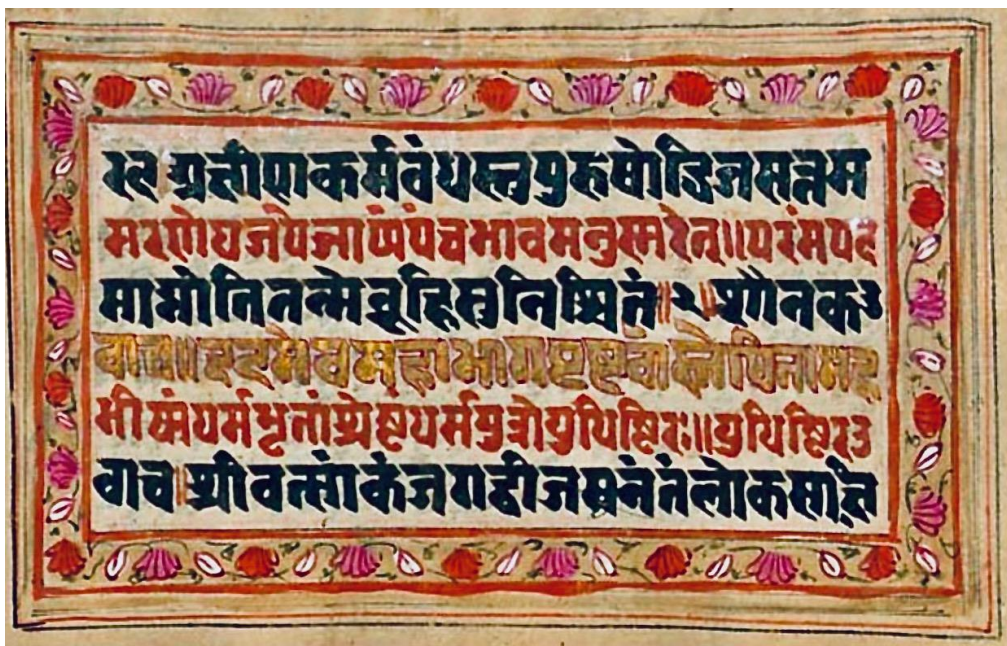 प्रक्षीणकर्मवंधस्तुपुरुषोद्विजसत्तम
मरणेयजपेजाप्यंपंचभावमनुस्मरेत्॥परंमपद
माप्नोतितन्मेब्रूहिसुनिश्चितं॥२॥शौनकउ
वाच॥इदमेवमहाभागपृष्टवांस्तेपितामह
भीष्मंधर्मभृतांश्रेष्टधर्मपुत्रोयुधिष्टिरः॥युधिष्टिरउ
वाच।श्रीवत्सांकंजगद्वीजमनंतंलोकसाक्षि